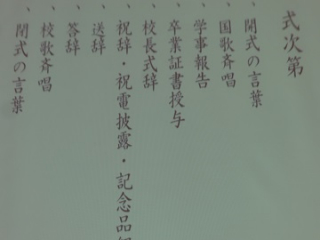 式次第
、開式の言葉
、国歌斉唱
、学事報告
、卒業証書授与
、校長式辞
、祝辞・祝電披露・記念品
、送辞
、答辞
、校歌斉唱
、閉式の言葉